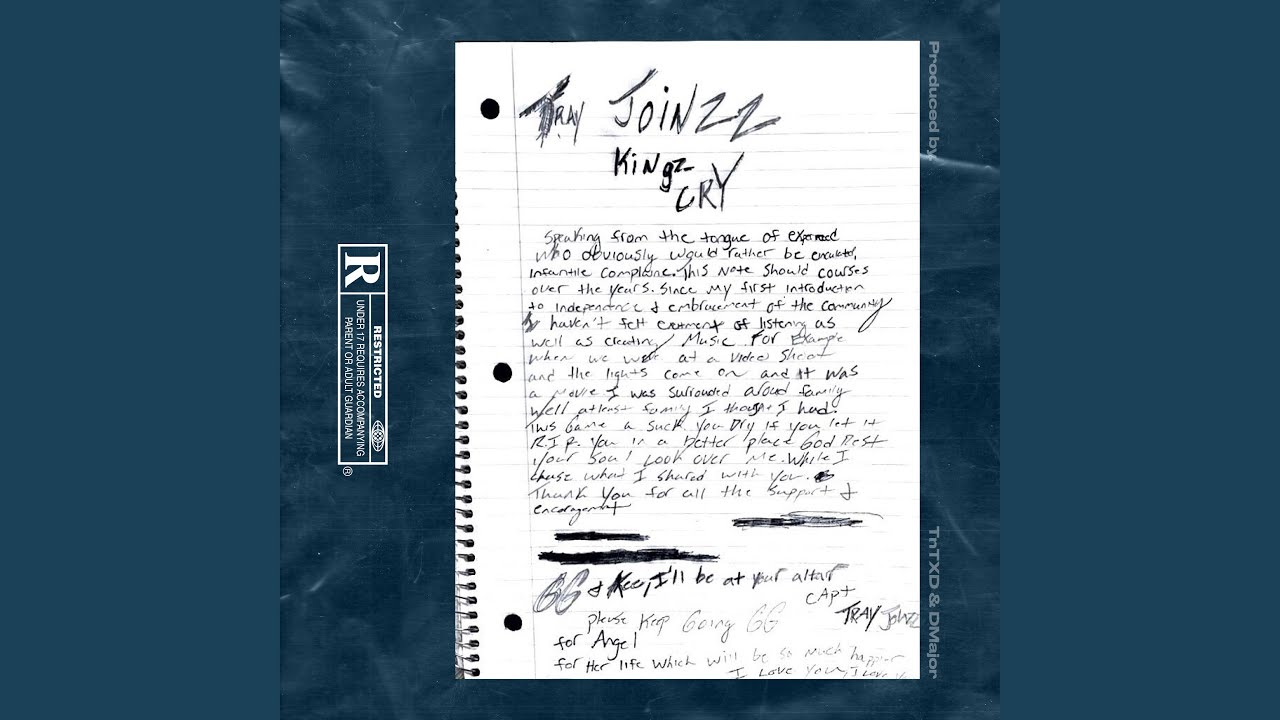 TRAY JOINZZ
Kingz
CRY
Speaking from the tongue of
who obviously would rather be
infantile This Note should courses
over the years. Since my first introduction
to independence & embracement of the community
I haven't felt of listening as
well as creating Music. For Example
when we were at a video shoot
and the lights come on and it was
a movie I was surrouded aroud family
well atleast family I I had.
This Game a suck you Dry if you let it
R.I.P. You in a better place God Rest
your soul look over me. While I
what I shared with you.
Thank you for all the support &
GG & Keep, I'll be at your altar
CApt
please Keep Going GG
TRAY JOINZZ
for Angel
for Her life which will be so much happier
I Love You, I Love
R
RESTRICTED
UNDER 17 REQUIRES ACCOMPANYING
PARENT OR ADULT GUARDIAN
®
Produced by
TnTXD & DMajor